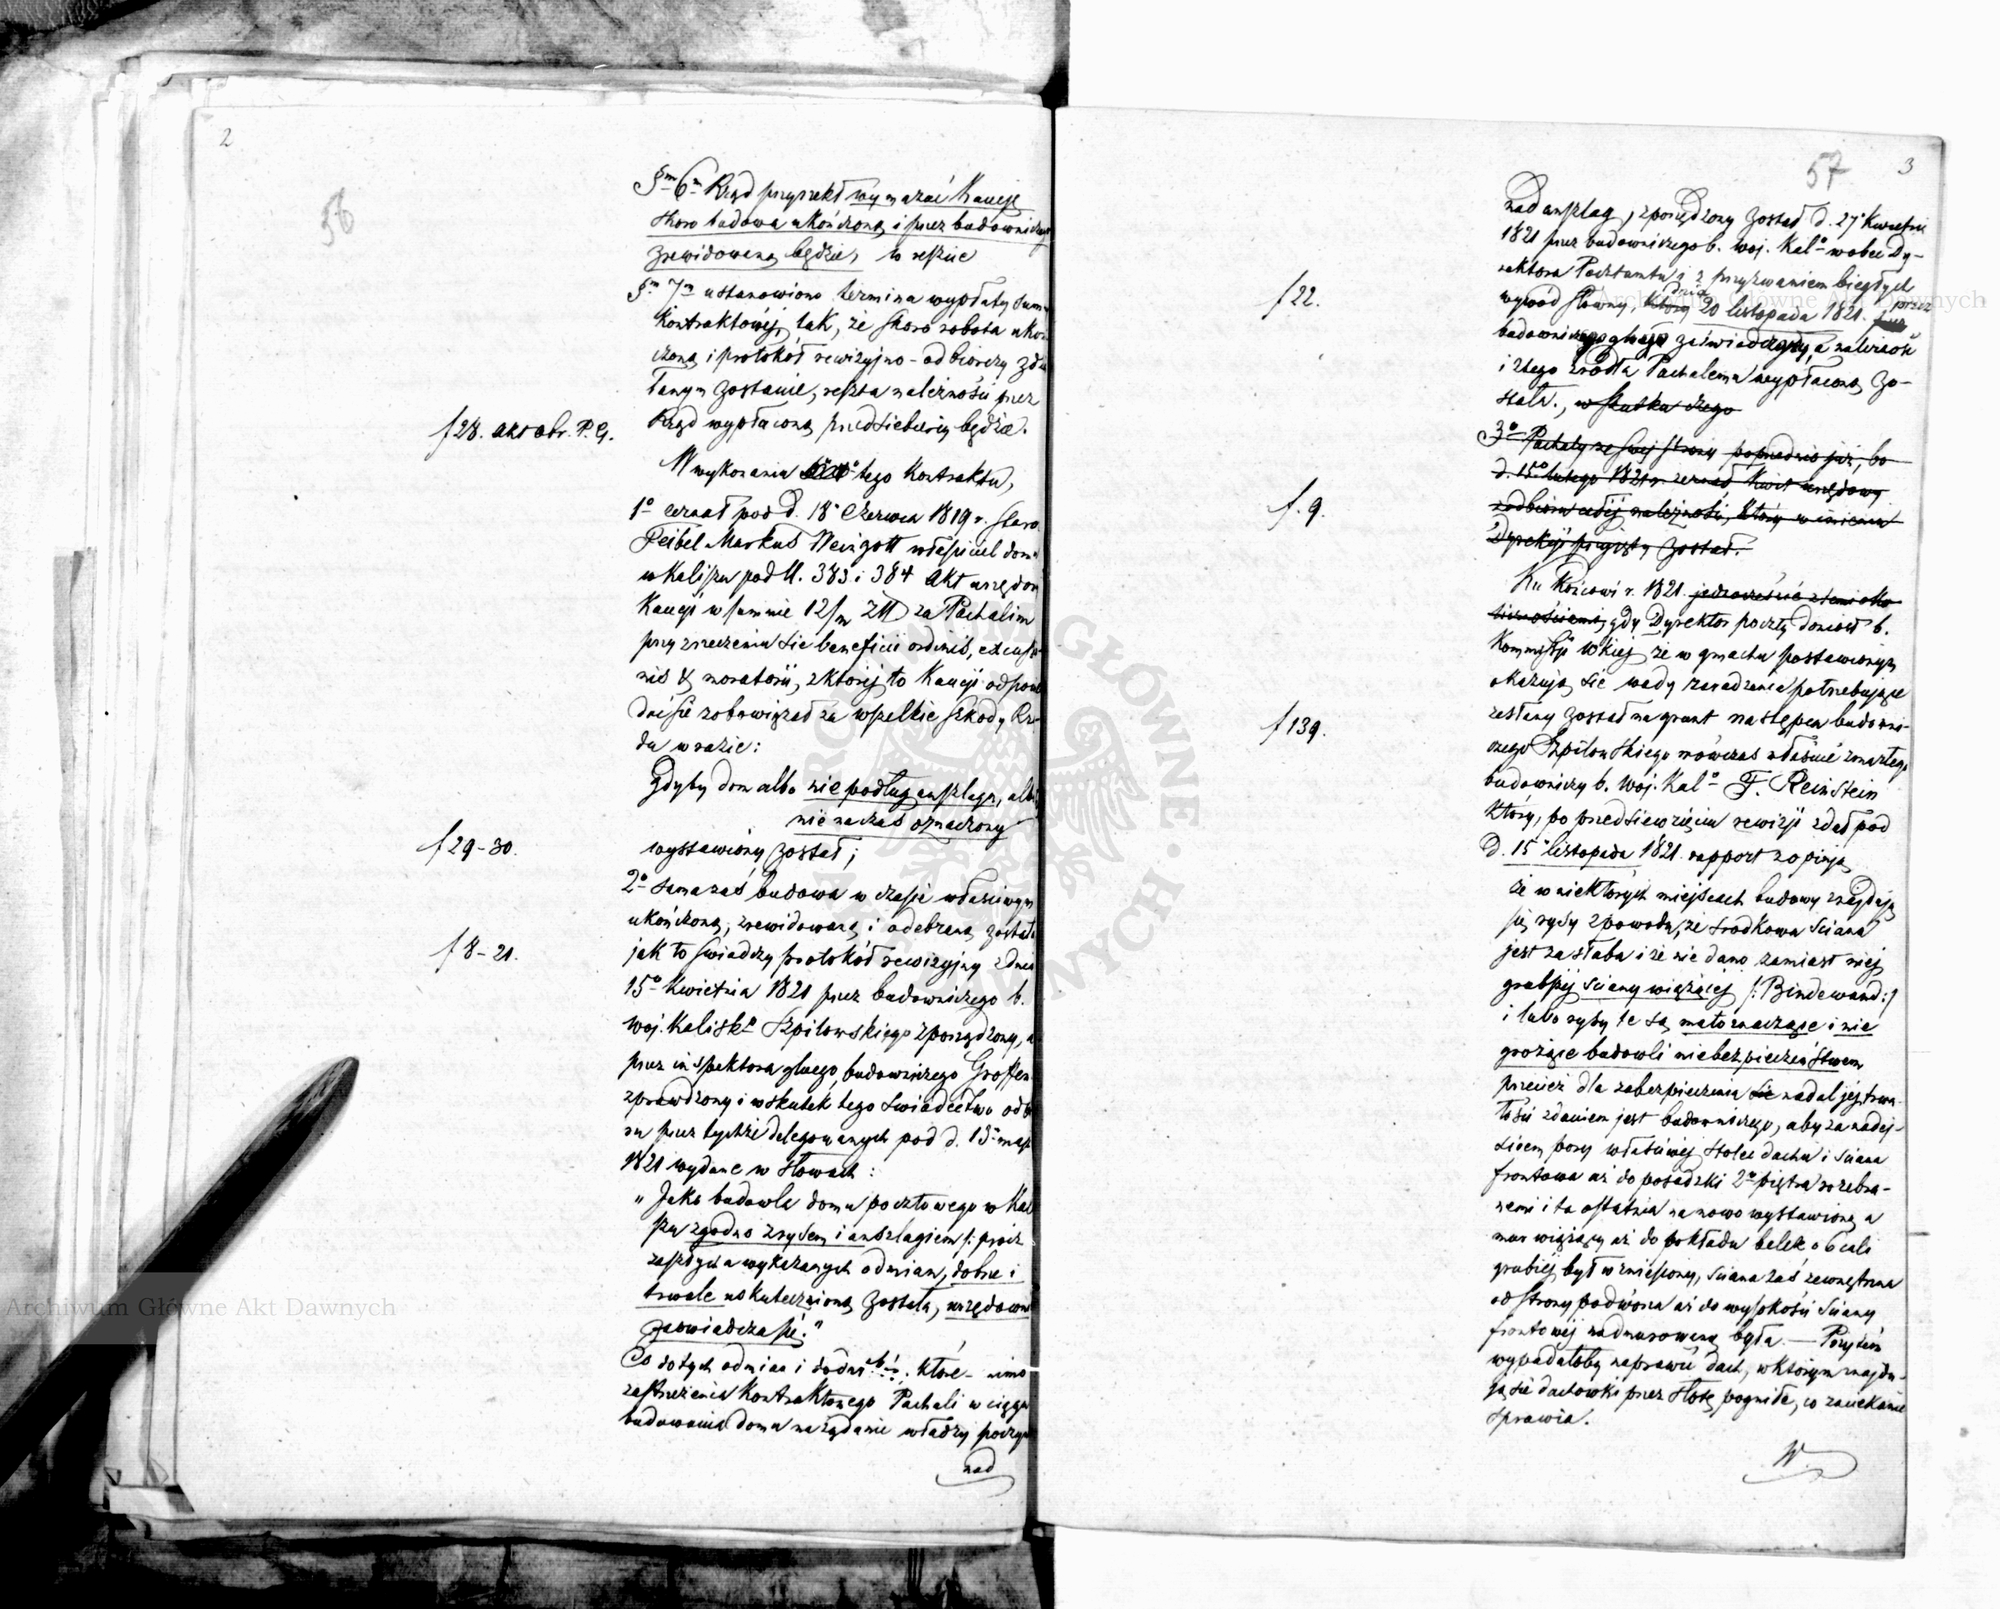 2
56
§m 6m Rząd przyrzekł wymazać Kaucję
skoro budowa ukończoną i przez budowniczego
zrewidowaną będzie, w reszcie
§m 7m ustanowiono termina wypłaty summy
Kontraktowéj tak, że skoro robota ukoń
czoną i protokół rewizyjno-odbiorczy zdzia
łanym zostanie, reszta należności przez
f 28. akt obr. P. G.
Rząd wypłaconą przedsiębiercy będzie.
W wykonaniu tego Kontraktu,
1o zeznał pod d. 18 Czerwca 1819 r. staro.
Feibel Markus Weingott właściciel domu
w Kaliszu pod N. 383 i 384 Akt urzędowy
Kaucji w summie 12/m Złł za Pachalim
przy zrzeczeniu sie beneficii ordinis, excussio
nis & moratorii, z której to Kaucji odpowie
dzieć sie zobowiązał za wszelkie szkody Rzą
du w razie:
Gdyby dom albo nie podług anszlagu, albo
nie na czas oznaczony
f 29-30.
wystawiony został;
2o sama zaś budowa w czasie właściwym
ukończoną, zrewidowaną i odebraną została
f 8-21.
jak to świadczy protokół rewizyjny z dnia
15o Kwietnia 1821 przez budowniczego b.
woj. Kalisko Szpilowskiego sporządzony, a
przez inspektora głnego budowniczego Groffen
sprawdzony i w skutek tego świadectwo odbio
ru przez tychże delegowanych pod d. 15 maja
1821 wydane w słowach:
„Jako budowla domu pocztowego w Kali
szu zgodno z rysem i anszlagiem /: prócz
zaszłych a wykazanych odmian, dobrze i
trwale uskutecznioną została, urzędownie
zaświadcza się."
Co do tych odmian i dodatków które mimo
zastrzeżenia Kontraktowego Pachali w ciągu
budowania domu na żądanie władzy poczyn
nad
57
3
nad anszlag, sporządzony został d. 27 Kwietnia
1821 przez budowniczego b. woj. Kalo wobec Dy-
rektora Pocztamtu i z przyzwaniem biegłych
f 22.
wywód słowny, który dnia 20 listopada 1821. przez
budowniczego głnego zaświadczony, a należność
i z tego źródła Pachalemu wypłaconą zo-
stała, w skutku czego
3o Pachaly ze swej strony poprzednio już, bo
f. 9.
d. 15o lutego 1821 r. zeznał Kwit urzędowy
z odbioru całéj należności, który w imieniu
Dyrekcji przyjęty został.
Ku Końcowi r. 1821. jednocześnie z temi oko
licznościami, gdy Dyrektor poczty doniósł b.
Kommissji Wkiej że w gmachu postawionym
okazują sie wady zaradzenia potrzebujące
f 139.
zesłany został na grunt następca budowni-
czego Szpilowskiego wówczas właśnie zmarłego
budowniczy b. woj. Kalo F. Reinstein
Który, po przedsięwzięciu rewizji zdał pod
d. 15 listopada 1821. rapport z opinją
że w niektórych miejscach budowy znajdują
się rysy z powodu, że środkowa ściana
jest za słaba i że nie dano zamiast niej
grubszéj ściany wiążącéj /: Bindewand :/
i lubo rysy te są mało znaczące i nie
grożące budowli niebezpieczeństwem
przecież dla zabezpieczenia sie nadal jej trwa
łości zdaniem jest budowniczego, aby za nadej-
ściem pory właściwéj stolec dachu i ściana
frontowa aż do posadzki 2o piętra rozebra-
nemi i ta ostatnia na nowo wystawioną a
mur wiążący aż do pokładu belek o 6 cali
grubiéj był wzniesiony, ściana zaś zewnętrzna
od strony podwórza aż do wysokości ściany
frontowéj nadmurowaną była. — Poczém
wypadałoby naprawić dach, w którym znajdu-
ją sie dachówki przez słotę pogniłe, co zaciekanie
sprawia.
W.
Archiwum Główne Akt Dawnych
Archiwum Główne Akt Dawnych
ARCHIWUM GŁÓWNE AKT DAWNYCH